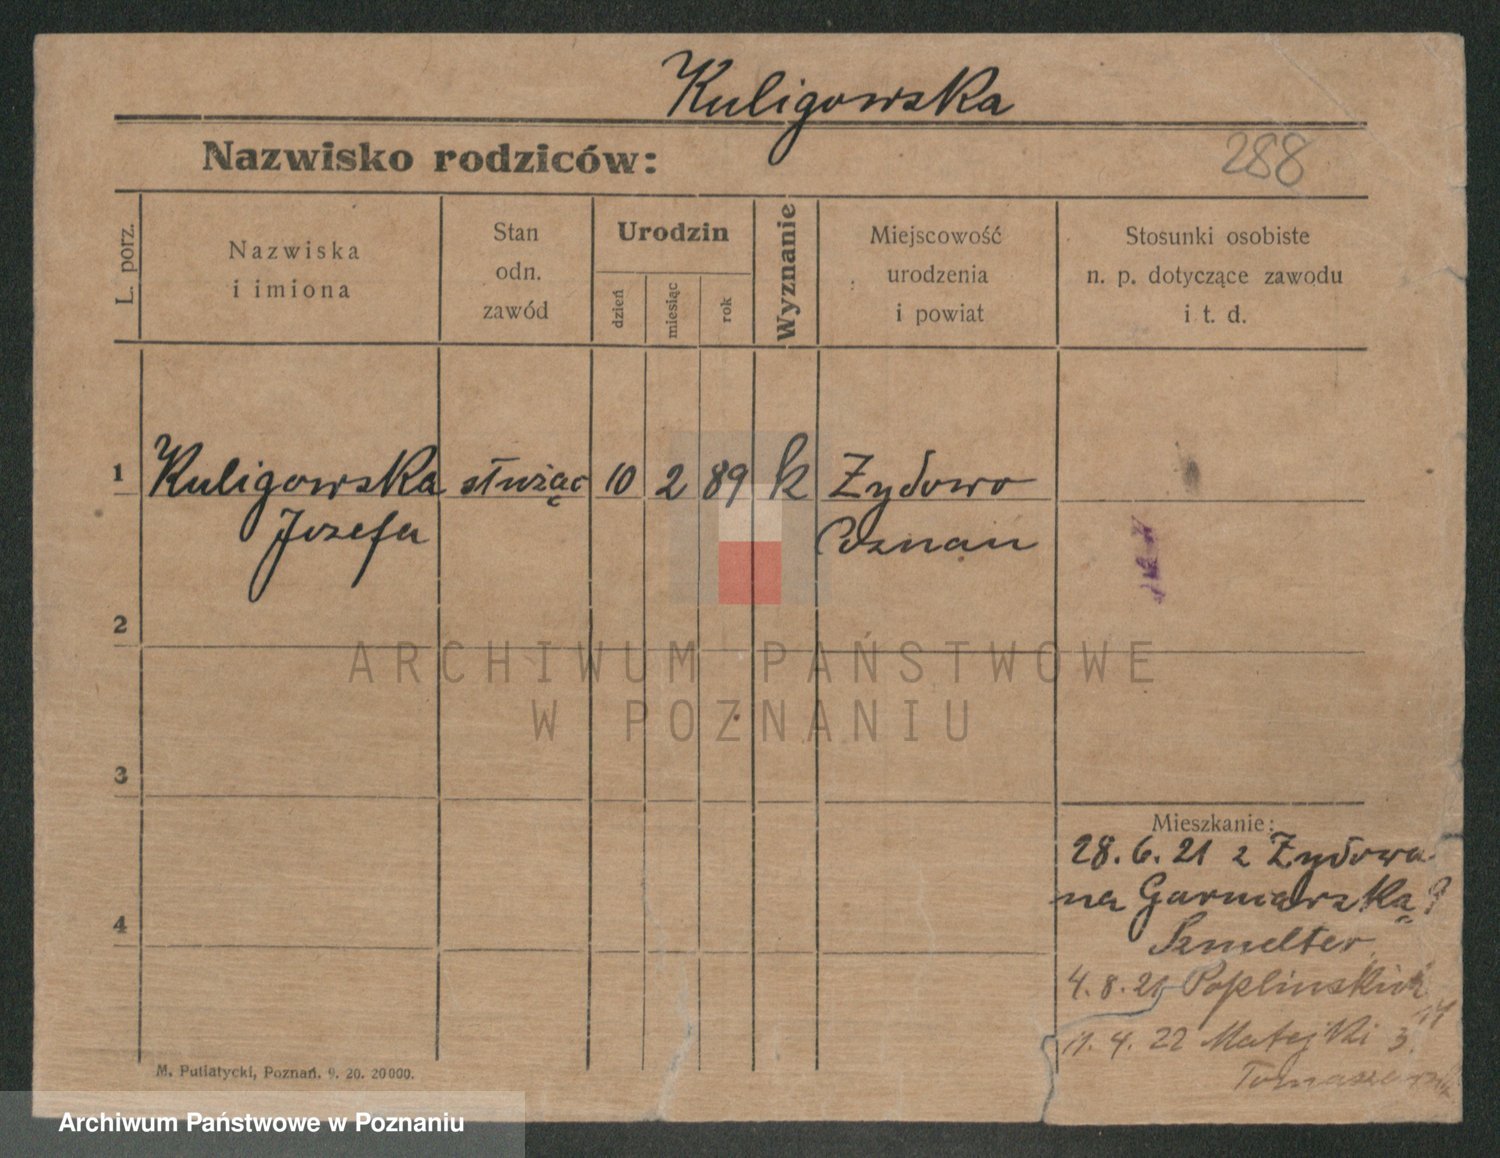 Kuligowska
Nazwisko rodziców:
288
L. porz.
Nazwiska
i imiona
Stan
odn.
zawód
Urodzin
dzień
miesiąc
rok
Wyznanie
Miejscowość
urodzenia
i powiat
Stosunki osobiste
n. p. dotyczące zawodu
i t. d.
1 Kuligowska służąc 10 2 89 k Zydowo
Jozefa Poznan
2
3
4
Mieszkanie:
28. 6. 21 z Zydowa
na Garncarską 9
Szmelter
4. 8. 21 Poplinskich
11. 4. 22 Matejki 3
M. Putiatycki, Poznań. 9. 20. 20000.
ARCHIWUM PAŃSTWOWE
W POZNANIU
Archiwum Państwowe w Poznaniu